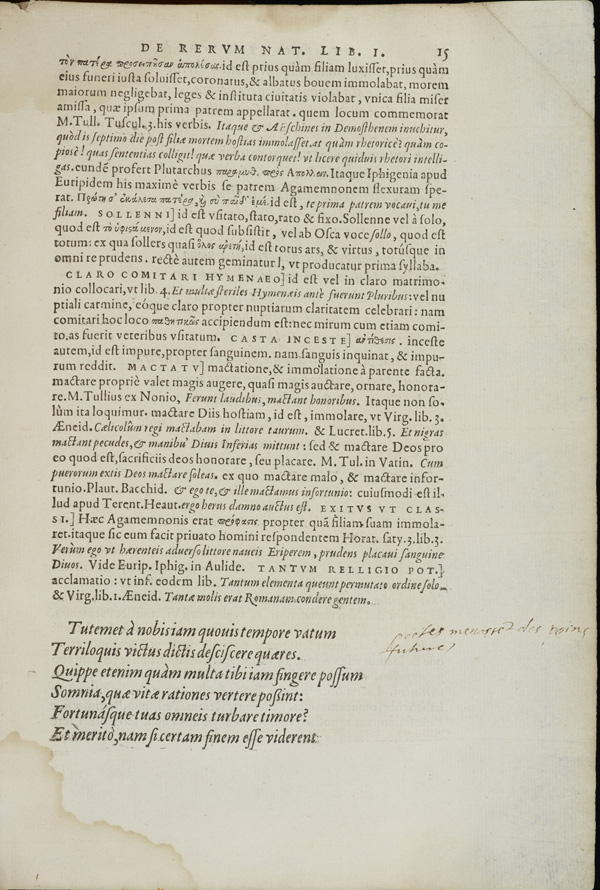 DE RERVM NAT. LIB. I. 15
τὸν πατέρα προσειποῦσαν ἀπολέσας. id est prius quàm filiam luxisset, prius quàm
eius funeri iusta soluisset, coronatus, & albatus bouem immolabat, morem
maiorum negligebat, leges & instituta ciuitatis violabat, vnica filia miser
amissa, quæ ipsum prima patrem appellarat. quem locum commemorat
M. Tull. Tuscul. 3. his verbis. Itaque & Aeschines in Demosthenem inuehitur,
quòd is septimo die post filiæ mortem hostias immolasset. at quàm rhetoricè! quàm co-
piosè! quas sententias colligit! quæ verba contorquet! vt licere quiduis rhetori intelli-
gas. eundē profert Plutarchus παραμυθ. πρὸς Ἀπολλων. Itaque Iphigenia apud
Euripidem his maximè verbis se patrem Agamemnonem flexuram spe-
rat. Πρώτη σ' ἐκάλεσα πατέρα, ϗ σὺ παῖδ' ἐμέ. id est, te prima patrem vocaui, tu me
filiam. SOLLENNI] id est vsitato, stato, rato & fixo. Sollenne vel à solo,
quod est τὸ ὑφιστάμενον, id est quod subsistit, vel ab Osca voce sollo, quod est
totum: ex qua sollers quasi ὅλος ἀρετὴ, id est totus ars, & virtus, totúsque in
omni re prudens. rectè autem geminatur l, vt producatur prima syllaba.
CLARO COMITARI HYMENAEO] id est vel in claro matrimo-
nio collocari, vt lib. 4. Et multæ steriles Hymenæis antè fuerunt Pluribus: vel nu
ptiali carmine, eóque claro propter nuptiarum claritatem celebrari: nam
comitari hoc loco παθητικῶς accipiendum est: nec mirum cum etiam comi-
to. as fuerit veteribus vsitatum. CASTA INCESTE] ἀντίθεσις. inceste
autem, id est impure, propter sanguinem. nam sanguis inquinat, & impu-
rum reddit. MACTATV] mactatione, & immolatione à parente facta.
mactare propriè valet magis augere, quasi magis auctare, ornare, honora-
re. M. Tullius ex Nonio, Ferunt laudibus, mactant honoribus. Itaque non so-
lùm ita loquimur. mactare Diis hostiam, id est, immolare, vt Virg. lib. 3.
Æneid. Cælicolûm regi mactabam in littore taurum. & Lucret. lib. 5. Et nigras
mactant pecudes, & manibu' Diuis Inferias mittunt: sed & mactare Deos pro
eo quod est, sacrificiis deos honorare, seu placare. M. Tul. in Vatin. Cum
puerorum extis Deos mactare soleas. ex quo mactare malo, & mactare infor-
tunio. Plaut. Bacchid. & ego te, & ille mactamus infortunio: cuiusmodi est il-
lud apud Terent. Heaut. ergo herus damno auctus est. EXITVS VT CLAS-
SI.] Hæc Agamemnonis erat πρόφασις propter quā filiam suam immola-
ret. itaque sic eum facit priuato homini respondentem Horat. saty. 3. lib. 3.
Verùm ego vt hærenteis aduerso littore naueis Eriperem, prudens placaui sanguine
Diuos. Vide Eurip. Iphig. in Aulide. TANTVM RELLIGIO POT.]
acclamatio: vt inf. eodem lib. Tantum elementa queunt permutato ordine solo.
& Virg. lib. 1. Æneid. Tantæ molis erat Romanam condere gentem.
Tutemet à nobis iam quouis tempore vatum
Terriloquis victus dictis desciscere quæres.
Quippe etenim quàm multa tibi iam fingere possum
Somnia, quæ vitæ rationes vertere poßint:
Fortunásque tuas omneis turbare timore?
Et meritò, nam si certam finem esse viderent
poetes menasset des poines
futures